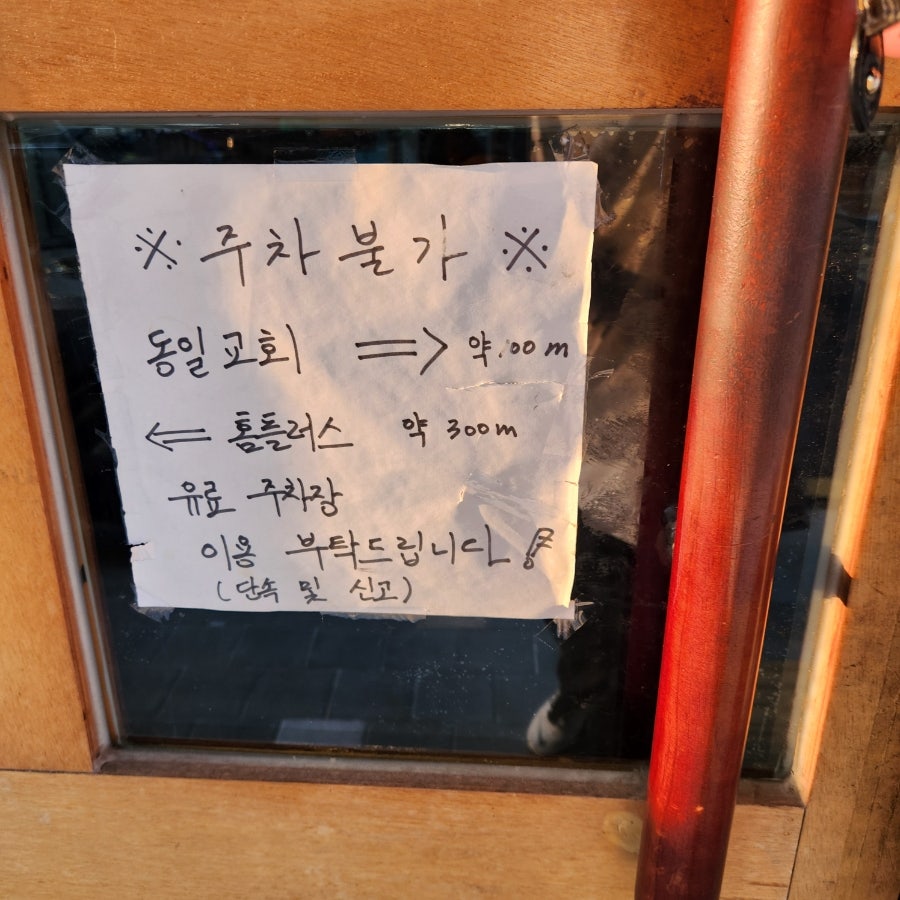 ※ 주차 불가 ※
동일교회 ⇒ 약 00m
⇐ 홈플러스 약 300m
유료 주차장
이용 부탁드립니다!
(단속 및 신고)